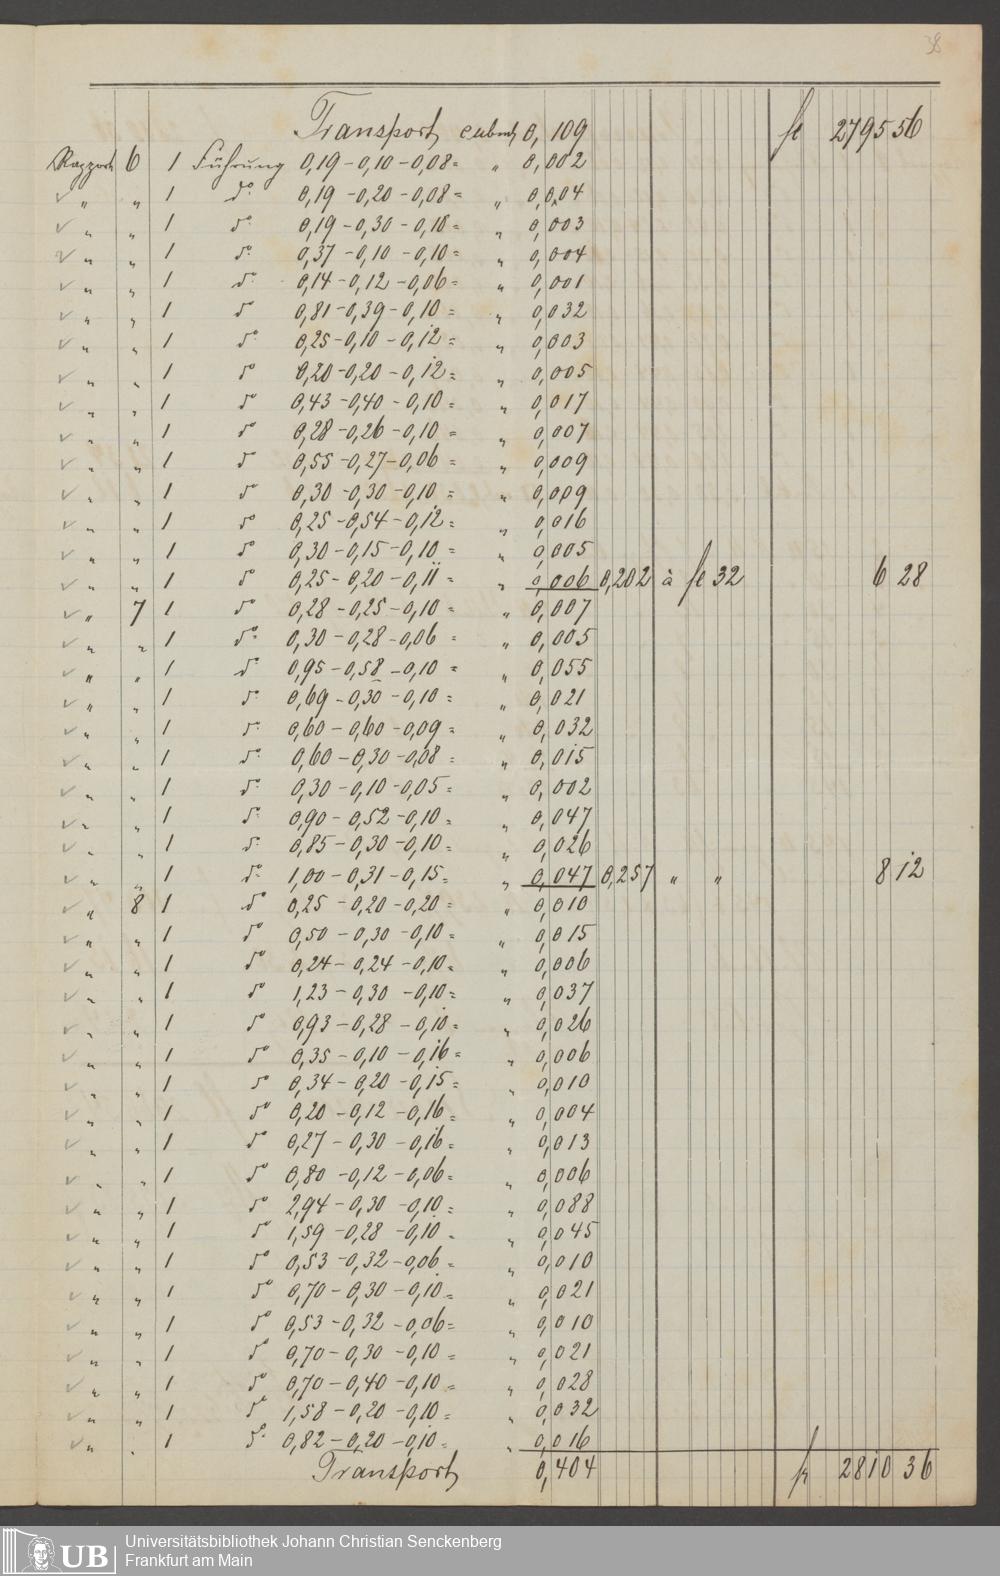 38
Transport cubmt 0,109 fr 2795 56
Rapport 6 1 Führung 0,19-0,10-0,08= " 0,002
✓ " " 1 do 0,19-0,20-0,08= " 0,004
✓ " " 1 do 0,19-0,30-0,10= " 0,003
✓ " " 1 do 0,37-0,10-0,10= " 0,004
✓ " " 1 do 0,14-0,12-0,06= " 0,001
✓ " " 1 do 0,81-0,39-0,10= " 0,032
✓ " " 1 do 0,25-0,10-0,12= " 0,003
✓ " " 1 do 0,20-0,20-0,12= " 0,005
✓ " " 1 do 0,43-0,40-0,10= " 0,017
✓ " " 1 do 0,28-0,26-0,10= " 0,007
✓ " " 1 do 0,55-0,27-0,06= " 0,009
✓ " " 1 do 0,30-0,30-0,10= " 0,009
✓ " " 1 do 0,25-0,54-0,12= " 0,016
✓ " " 1 do 0,30-0,15-0,10= " 0,005
✓ " " 1 do 0,25-0,20-0,11= " 0,006 0,202 à fr 32 6 28
✓ " 7 1 do 0,28-0,25-0,10= " 0,007
✓ " " 1 do 0,30-0,28-0,06= " 0,005
✓ " " 1 do 0,95-0,58-0,10= " 0,055
✓ " " 1 do 0,69-0,30-0,10= " 0,021
✓ " " 1 do 0,60-0,60-0,09= " 0,032
✓ " " 1 do 0,60-0,30-0,08= " 0,015
✓ " " 1 do 0,30-0,10-0,05= " 0,002
✓ " " 1 do 0,90-0,52-0,10= " 0,047
✓ " " 1 do 0,85-0,30-0,10= " 0,026
✓ " " 1 do 1,00-0,31-0,15= " 0,047 0,257 " " 8 12
✓ " 8 1 do 0,25-0,20-0,20= " 0,010
✓ " " 1 do 0,50-0,30-0,10= " 0,015
✓ " " 1 do 0,24-0,24-0,10= " 0,006
✓ " " 1 do 1,23-0,30-0,10= " 0,037
✓ " " 1 do 0,93-0,28-0,10= " 0,026
✓ " " 1 do 0,35-0,10-0,16= " 0,006
✓ " " 1 do 0,34-0,20-0,15= " 0,010
✓ " " 1 do 0,20-0,12-0,16= " 0,004
✓ " " 1 do 0,27-0,30-0,16= " 0,013
✓ " " 1 do 0,80-0,12-0,06= " 0,006
✓ " " 1 do 2,94-0,30-0,10= " 0,088
✓ " " 1 do 1,59-0,28-0,10= " 0,045
✓ " " 1 do 0,53-0,32-0,06= " 0,010
✓ " " 1 do 0,70-0,30-0,10= " 0,021
✓ " " 1 do 0,53-0,32-0,06= " 0,010
✓ " " 1 do 0,70-0,30-0,10= " 0,021
✓ " " 1 do 0,70-0,40-0,10= " 0,028
✓ " " 1 do 1,58-0,20-0,10= " 0,032
✓ " " 1 do 0,82-0,20-0,10= " 0,016
Transport 0,404 fr 2810 36
UB Universitätsbibliothek Johann Christian Senckenberg
Frankfurt am Main